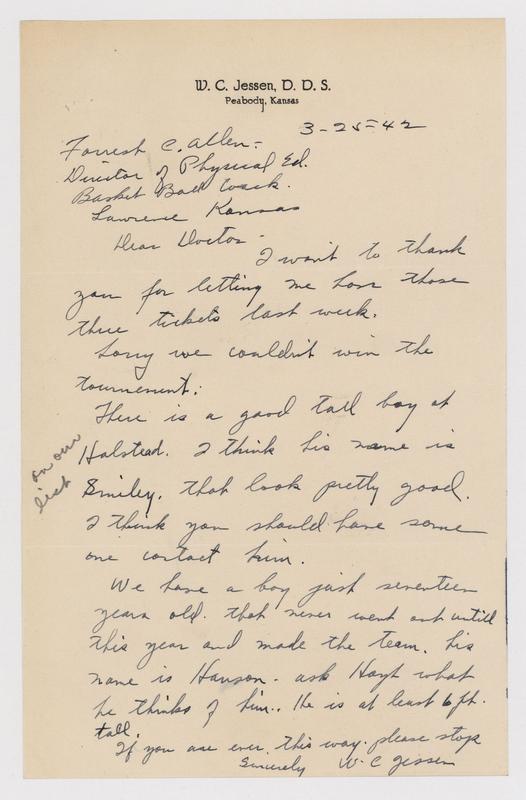 W. C. Jessen, D. D. S.
Peabody, Kansas
3-25-42
Forrest C. Allen-
Director of Physical Ed.
Basket Ball Coach.
Lawrence Kansas
Dear Doctor-
I want to thank
you for letting me have those
three tickets last week.
Sorry we couldn't win the
tournement.
There is a good tall boy at
Halstead. I think his name is
on our
list
Smiley. that look pretty good.
I think you should have some
one contact him.
We have a boy just seventeen
years old. that never went out untill
this year and made the team. his
name is Hanson. ask Hoyt what
he thinks of him.. He is at least 6 ft.
tall.
If you are ever this way. please stop
Sincerely W. C Jessen